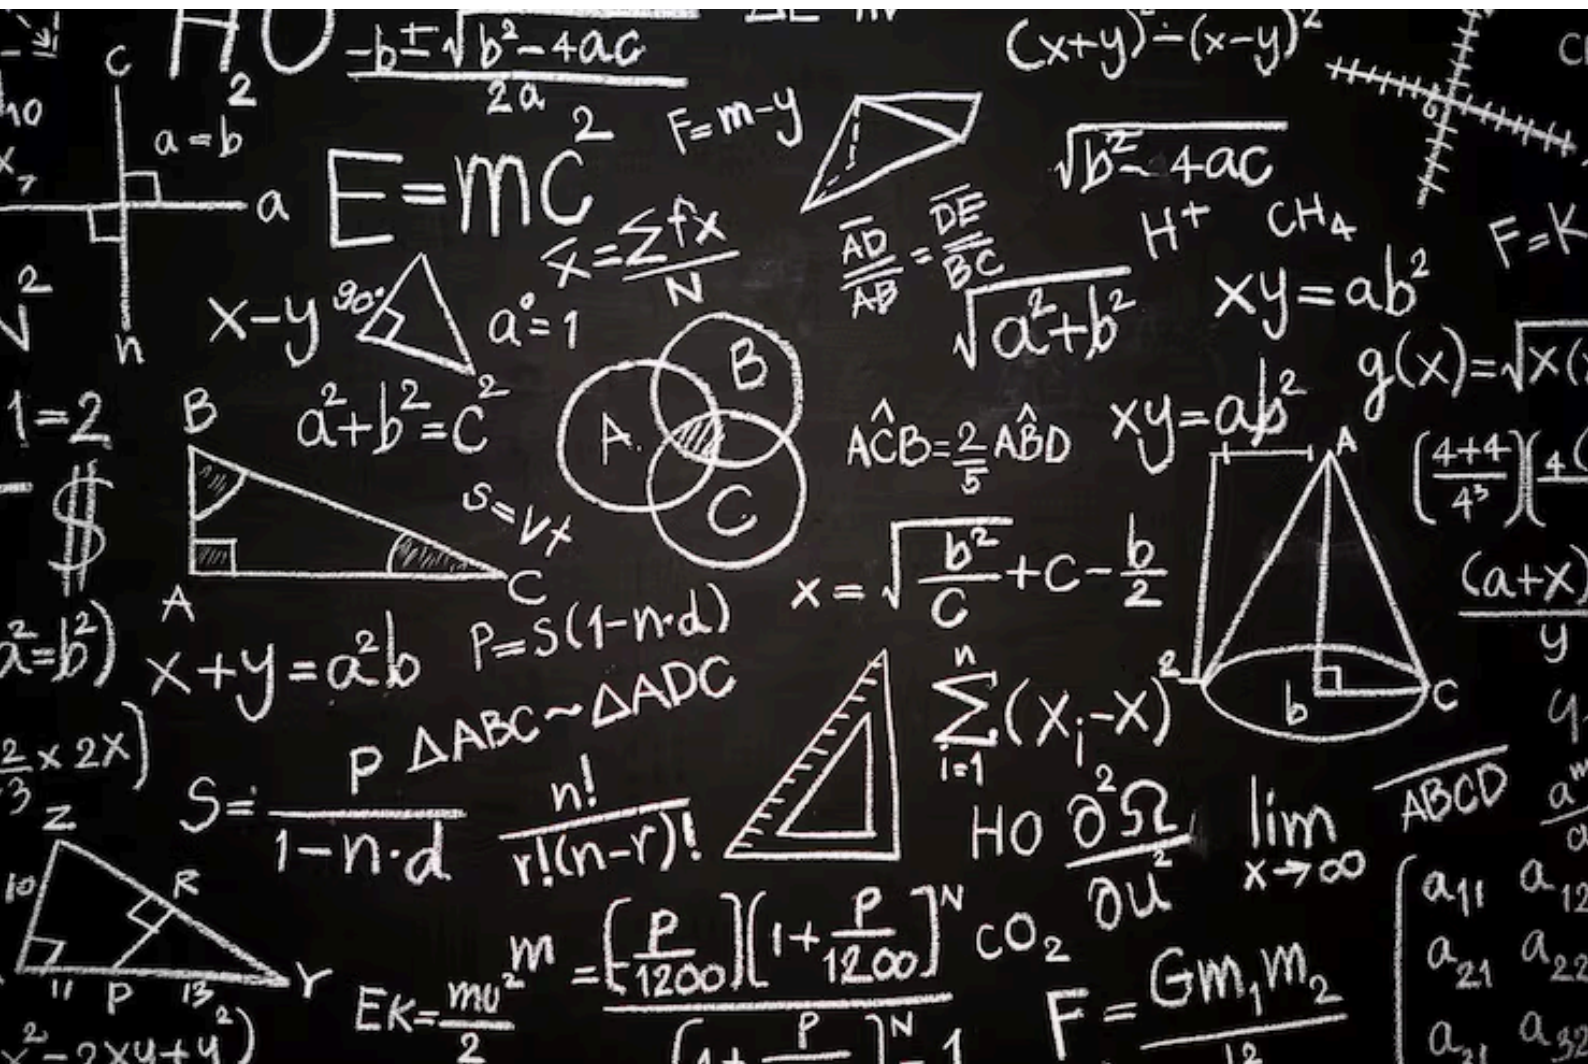 H₂O
-b±√b²-4ac / 2a
(x+y)²-(x-y)²
c
10
a=b
a
n
E=mc²
F=m-y
√b²-4ac
x̄=∑fx / N
AD/AB = DE/BC
H+
CH₄
F=K
√2
x-y
90°
a°=1
√a²+b²
xy=ab²
g(x)=√x(
1=2
B
a²+b²=c²
A
B
C
AĈB=2/5 AB̂D
xy=ab²
A
(4+4 / 4³)(4
$
S=Vt
A
C
x=√b²/C+C-b/2
(a+x) / y
a²=b²)
x+y=a²b
P=S(1-n·d)
∆ABC~∆ADC
n
∑(xᵢ-x)²
i=1
b
C
2/3 x 2x)
S=P / 1-n·d
n! / r!(n-r)!
HO
∂²Ω / ∂u²
lim
x→∞
ABCD
aᵐ
Z
10
R
11
P
13
Y
m=[P/1200][1+P/1200]ᴺ
CO₂
a₁₁ a₁₂
a₂₁ a₂₂
EK=mu²/2
F=Gm₁m₂
a₃₂
x²-2xy+y²)